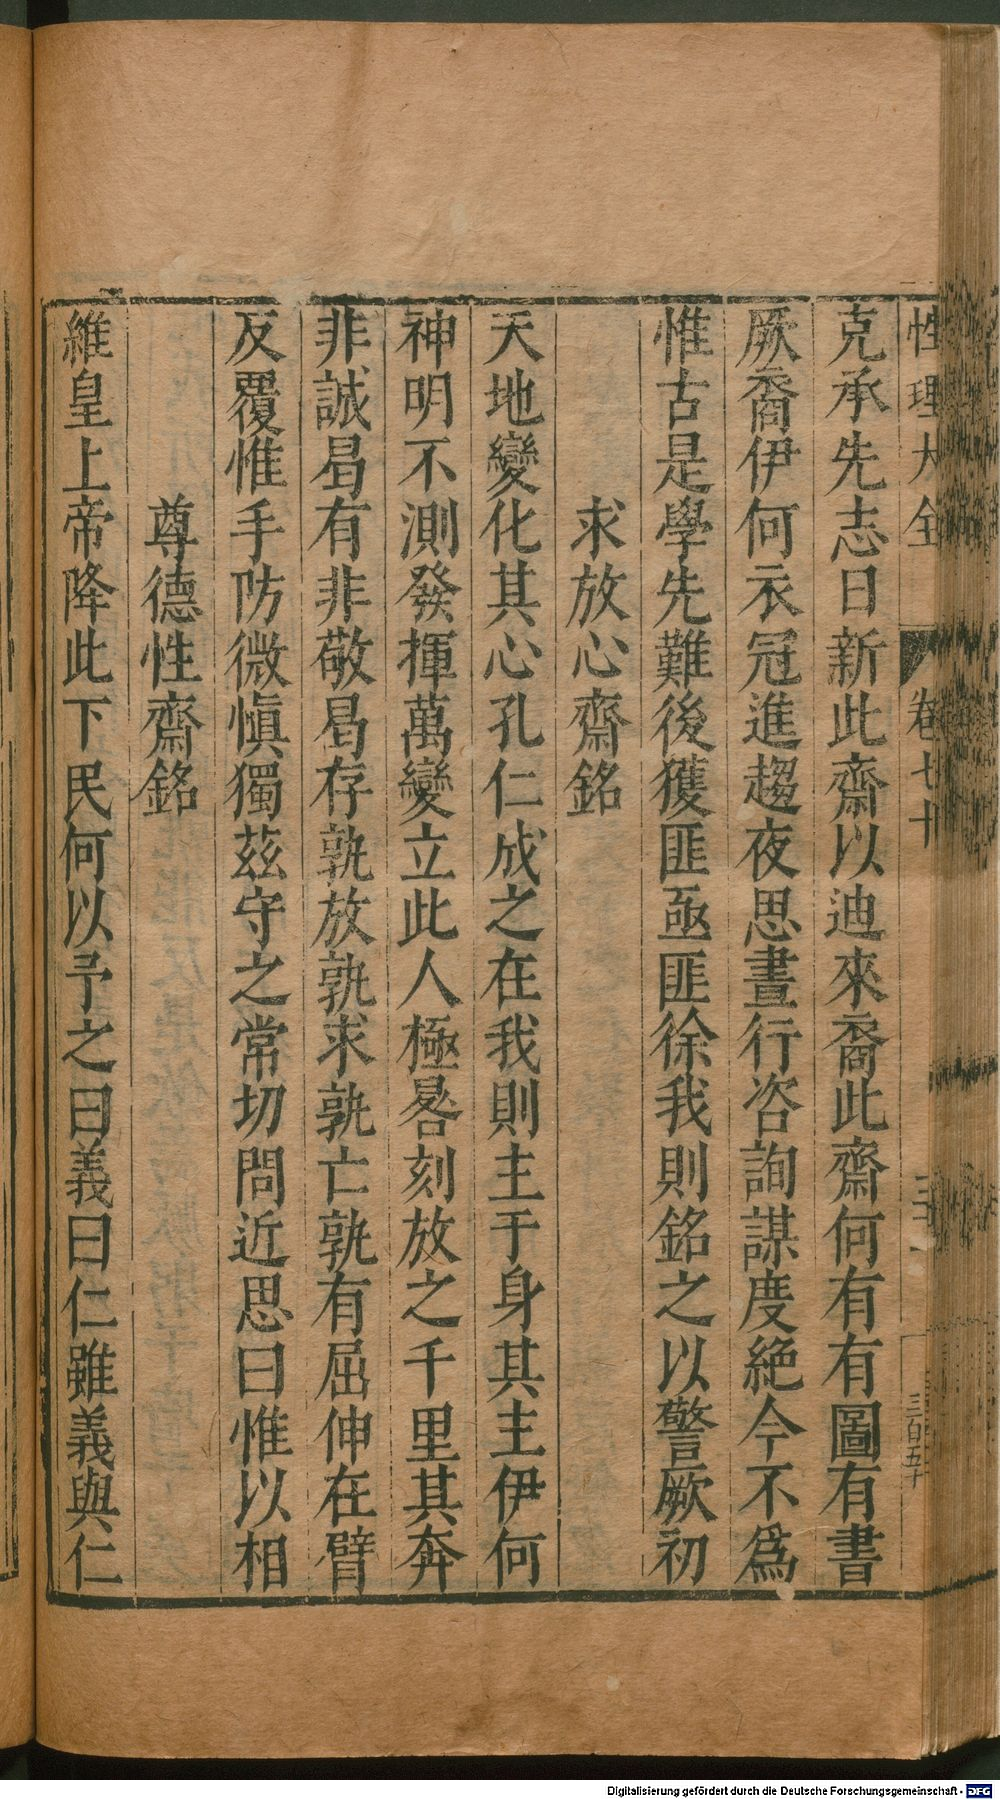 性理大全 卷七十
克承先志日新此齋以迪來裔此齋何有有圖有書
厥裔伊何衣冠進趨夜思晝行咨詢謀度絕今不爲
惟古是學先難後獲匪亟匪徐我則銘之以警厥初
求放心齋銘
天地變化其心孔仁成之在我則主于身其主伊何
神明不測發揮萬變立此人極晷刻放之千里其奔
非誠曷有非敬曷存孰放孰求孰亡孰有屈伸在臂
反覆惟手防微愼獨茲守之常切問近思曰惟以相
尊德性齋銘
維皇上帝降此下民何以予之曰義曰仁雖義與仁
三百五十
Digitalisierung gefördert durch die Deutsche Forschungsgemeinschaft - DFG